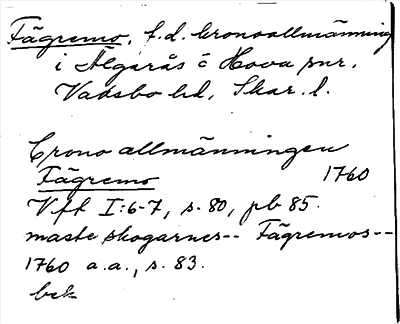 Fägremo, f.d. Cronoallmänning
i Älgarås o Hova snr,
Vadsbo hd, Skar. l.
Crono allmänningen
Fägremo 1760
Vft I:6-7, s. 80, pb 85.
maste skogarnes-- Fägremos--
1760 a.a., s. 83.
bek